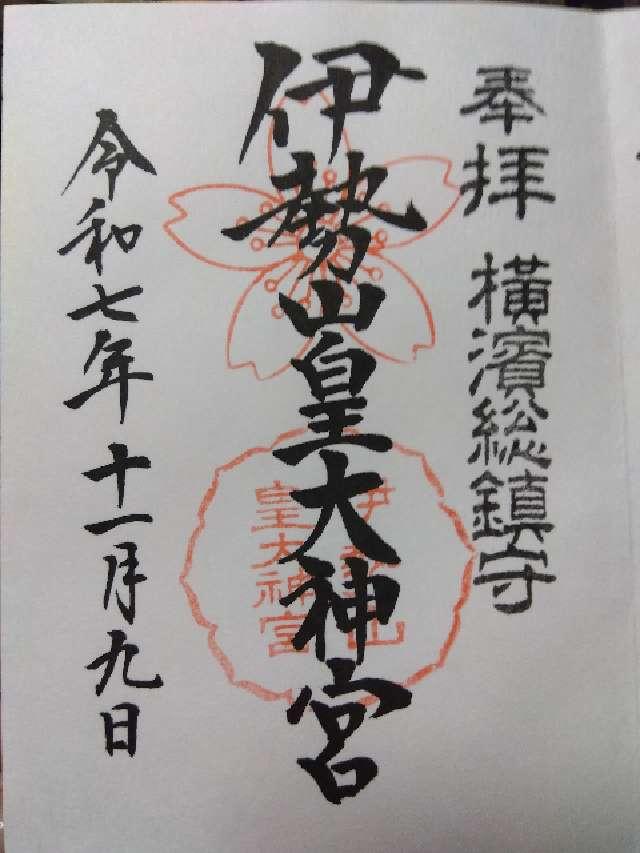 奉拝 横濱総鎮守
伊勢山皇大神宮
伊勢山
皇大神宮
令和七年十一月九日